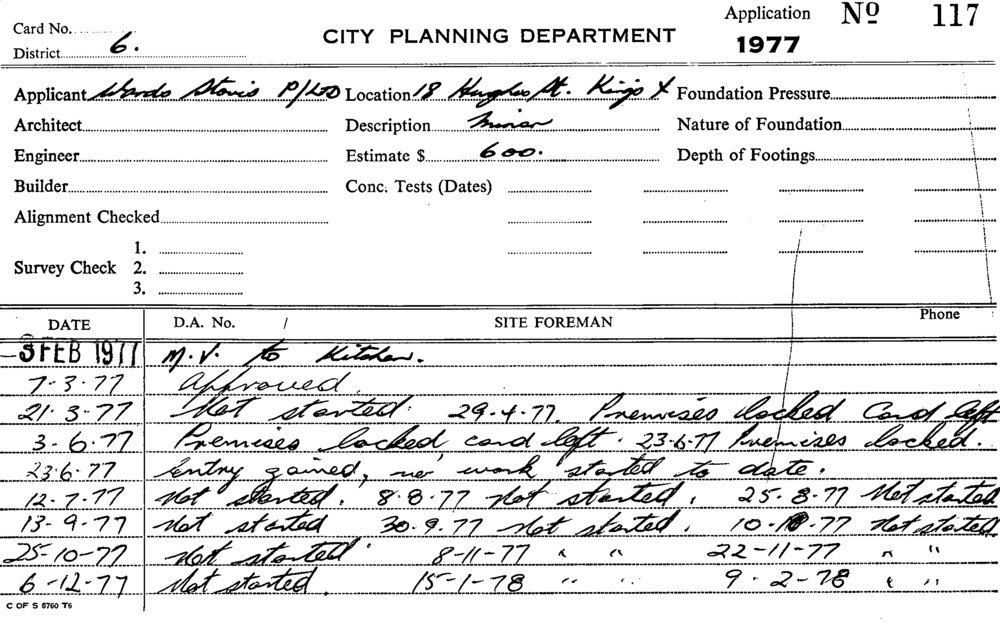 Card No.
District 6.
CITY PLANNING DEPARTMENT
Application No 117
1977
Applicant Wardo P/LTD Location 18 Hughes St. Kings X Foundation Pressure
Architect Description Minor Nature of Foundation
Engineer Estimate $ 600. Depth of Footings
Builder Conc. Tests (Dates)
Alignment Checked
Survey Check 1.
2.
3.
DATE D.A. No. / SITE FOREMAN Phone
-3 FEB 1977 M.V. to Kitchen.
7-3-77 Approved.
21-3-77 Not started. 29-4-77. Premises locked Card left
3-6-77 Premises locked, card left. 23-6-77 Premises locked.
23-6-77 Entry gained, no work started to date.
12-7-77 Not started. 8-8-77 Not started. 25-8-77 Not started
13-9-77 Not started 30-9-77 Not started. 10-10-77 Not started.
25-10-77 Not started. 8-11-77 " " 22-11-77 " "
6-12-77 Not started. 15-1-78 " " 9-2-78 " "
C OF S 5760 T6